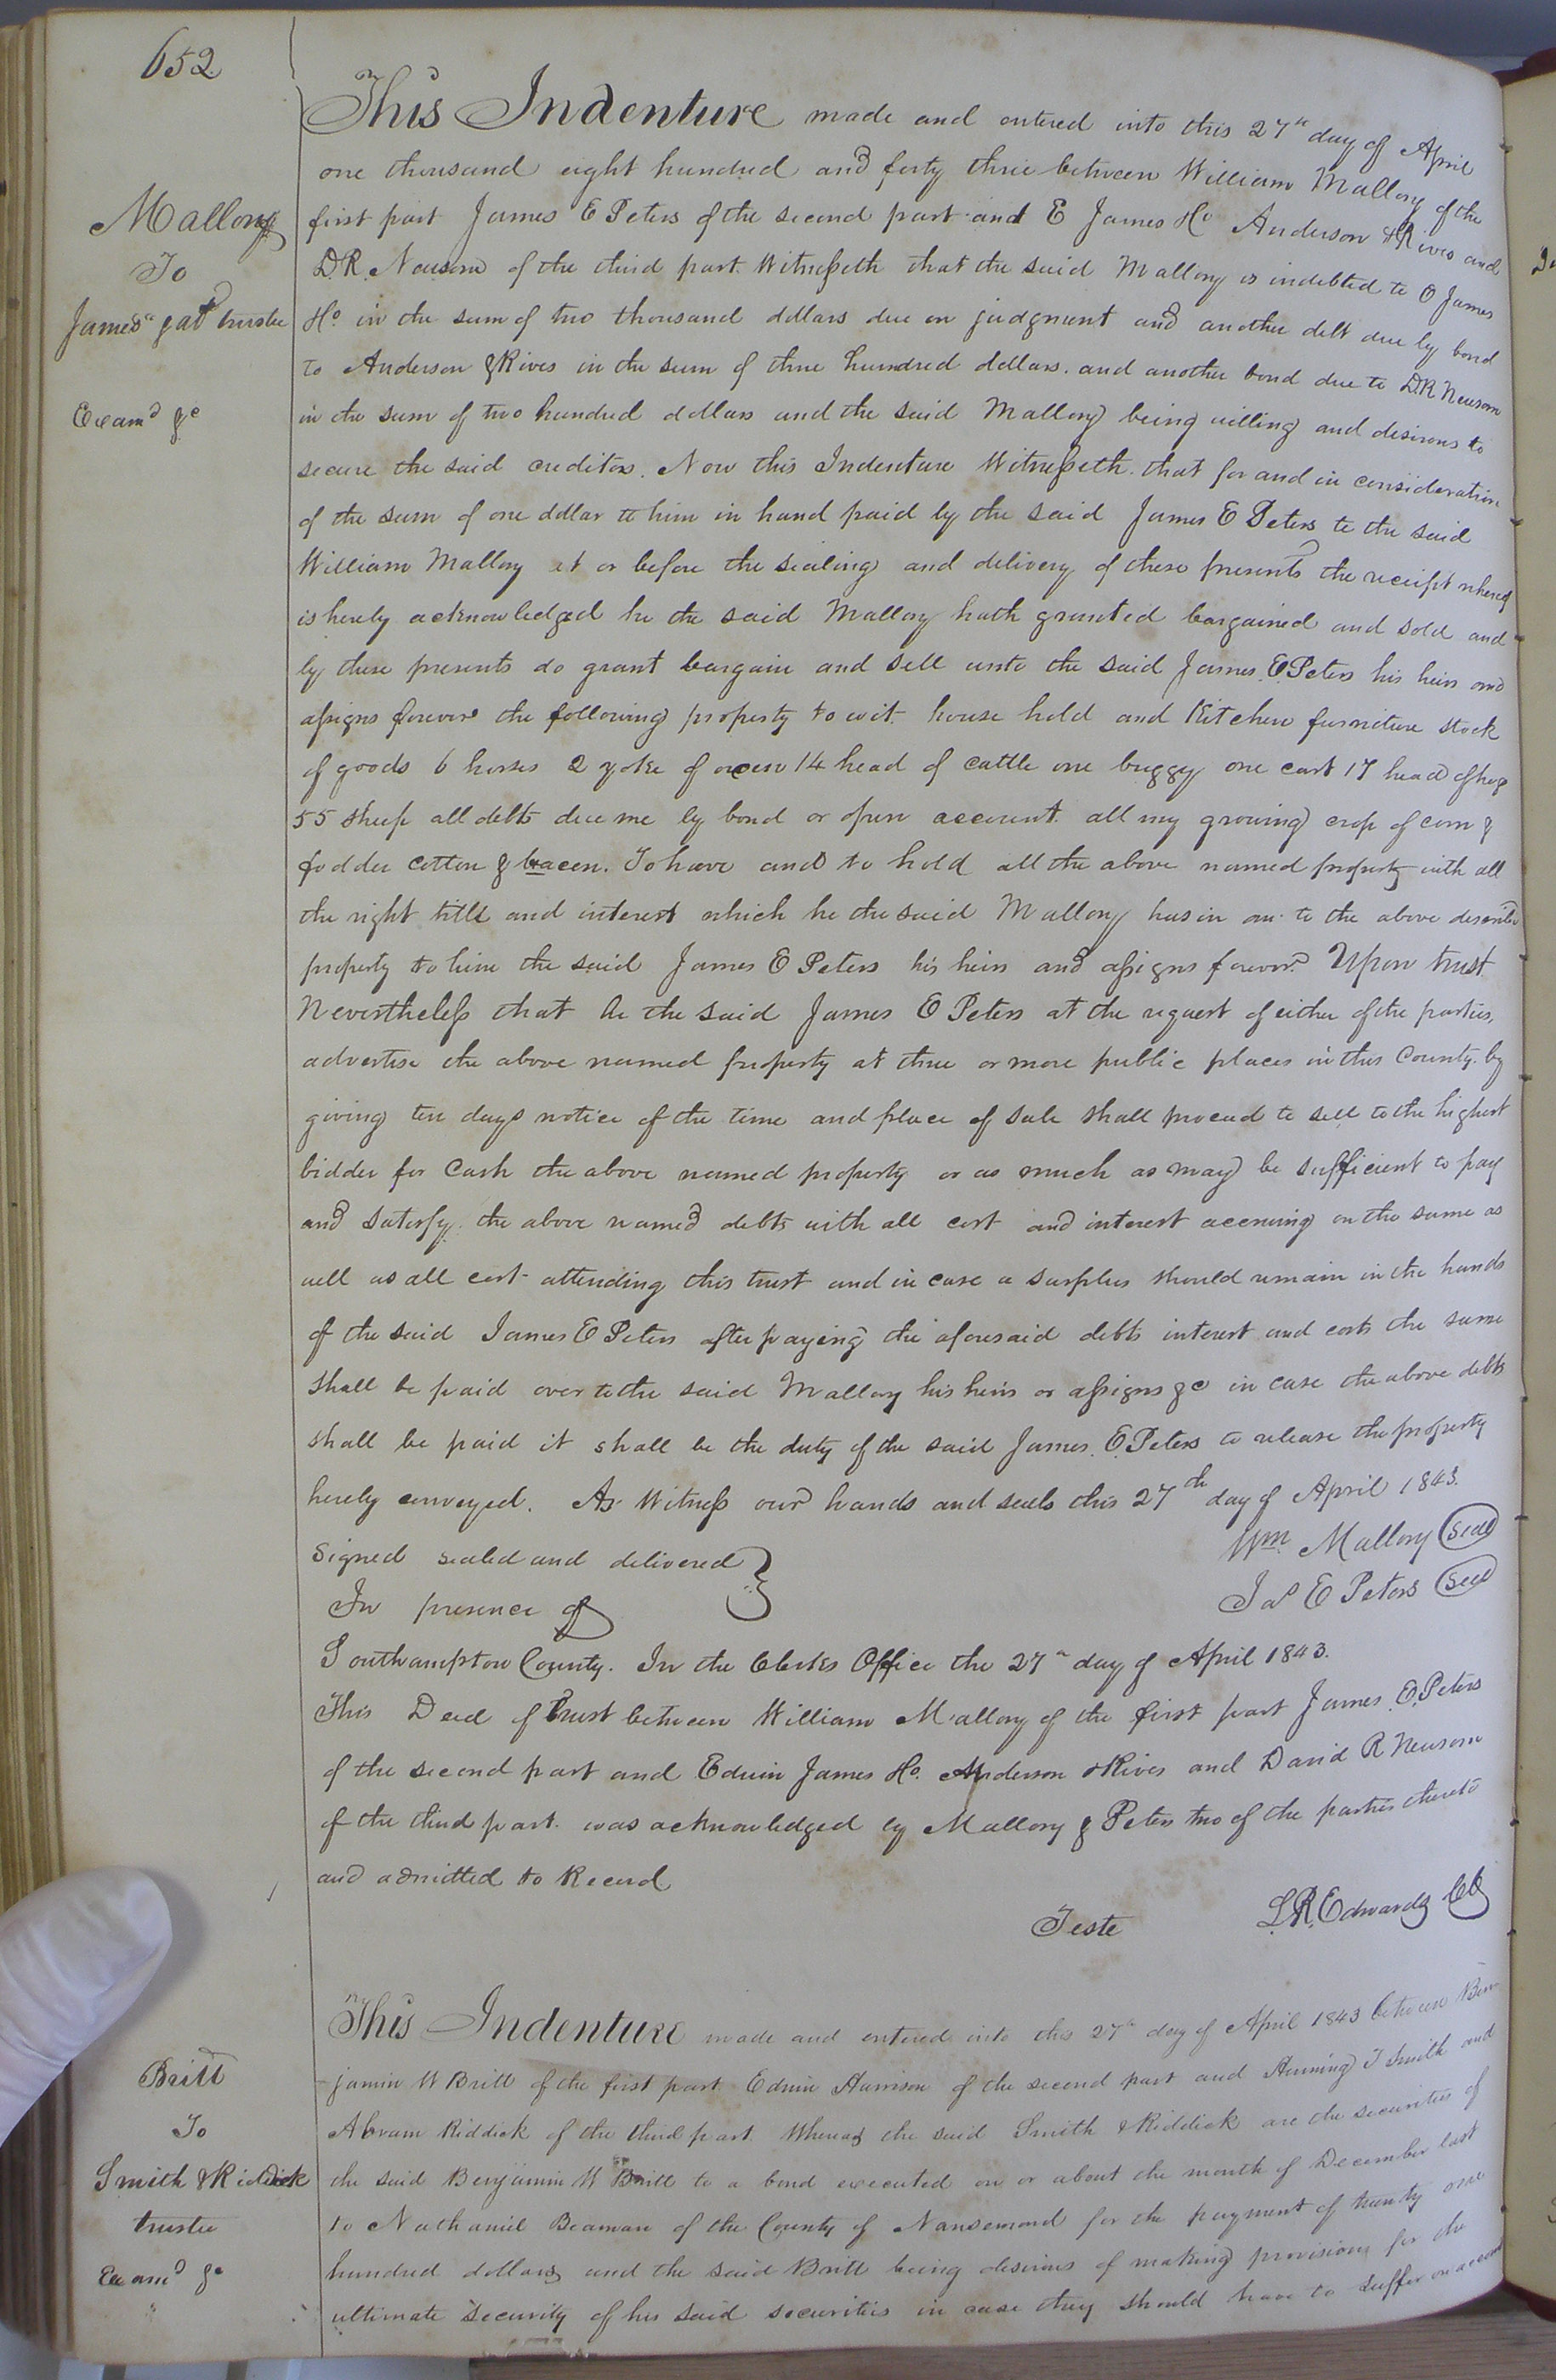 652
This Indenture made and entered into this 27th day of April
one thousand eight hundred and forty three between William Mallory of the
Mallory
first part James E Peters of the second part and E James & Co Anderson & Rives and
To
D.R. Newsom of the third part. Witnesseth that the said Mallory is indebted to E James
James & al trustee
& Co. in the sum of two thousand dollars due on judgment and another debt due by bond
to Anderson & Rives in the sum of three hundred dollars. and another bond due to D.R Newsom
Examd &c
in the sum of two hundred dollars and the said Mallory being willing and desirous to
secure the said creditors. Now this Indenture Witnesseth that for and in consideration
of the sum of one dollar to him in hand paid by the said James E Peters to the said
William Mallory at or before the sealing and delivery of these presents the receipt whereof
is hereby acknowledged he the said Mallory hath granted bargained and sold and
by these presents do grant bargain and sell unto the said James E Peters his heirs and
assigns forever the following property to wit. house hold and Kitchen furniture stock
of goods 6 horses 2 yoke of oxen 14 head of cattle one buggy one cart 17 head of hogs
55 sheep all debts due me by bond or open account. all my growing crop of corn &
fodder cotton & bacon. To have and to hold all the above named property with all
the right title and interest which he the said Mallory has in an to the above described
property to him the said James E Peters his heirs and assigns forever. Upon trust
Nevertheless that he the said James E Peters at the request of either of the parties,
advertise the above named property at three or more public places in this County. by
giving ten days notice of the time and place of sale shall proceed to sell to the highest
bidder for Cash the above named property or as much as may be sufficient to pay
and satisfy the above named debts with all cost and interest accruing on the same as
well as all cost attending this trust and in case a surplus should remain in the hands
of the said James E Peters after paying the aforesaid debts interest and costs the same
shall be paid over to the said Mallory his heirs or assigns &c in case the above debts
shall be paid it shall be the duty of the said James E Peters to release the property
hereby conveyed. As Witness our hands and seals this 27th day of April 1843.
Signed sealed and delivered } Wm Mallory (Seal)
In presence of Jas E Peters (Seal)
Southampton County. In the Clerks Office the 27th day of April 1843.
This Deed of Trust between William Mallory of the first part James E. Peters
of the second part and Edwin James & Co. Anderson & Rives and David R Newsom
of the third part. was acknowledged by Mallory & Peters two of the parties thereto
and admitted to Record
Teste L.R. Edwards Clk
This Indenture made and entered into this 27th day of April 1843 between Ben
Britt
jamin W Britt of the first part Edwin Harrison of the second part and Henning T Smith and
To
Abram Riddick of the third part. Whereas the said Smith & Riddick are the securities of
Smith & Riddick
the said Benjamin W Britt to a bond executed on or about the month of December last
trustee
to Nathaniel Beaman of the County of Nansemond for the payment of twenty one
Examd &c
hundred dollars and the said Britt being desirous of making provisions for the
ultimate security of his said securities in case they should have to suffer on account